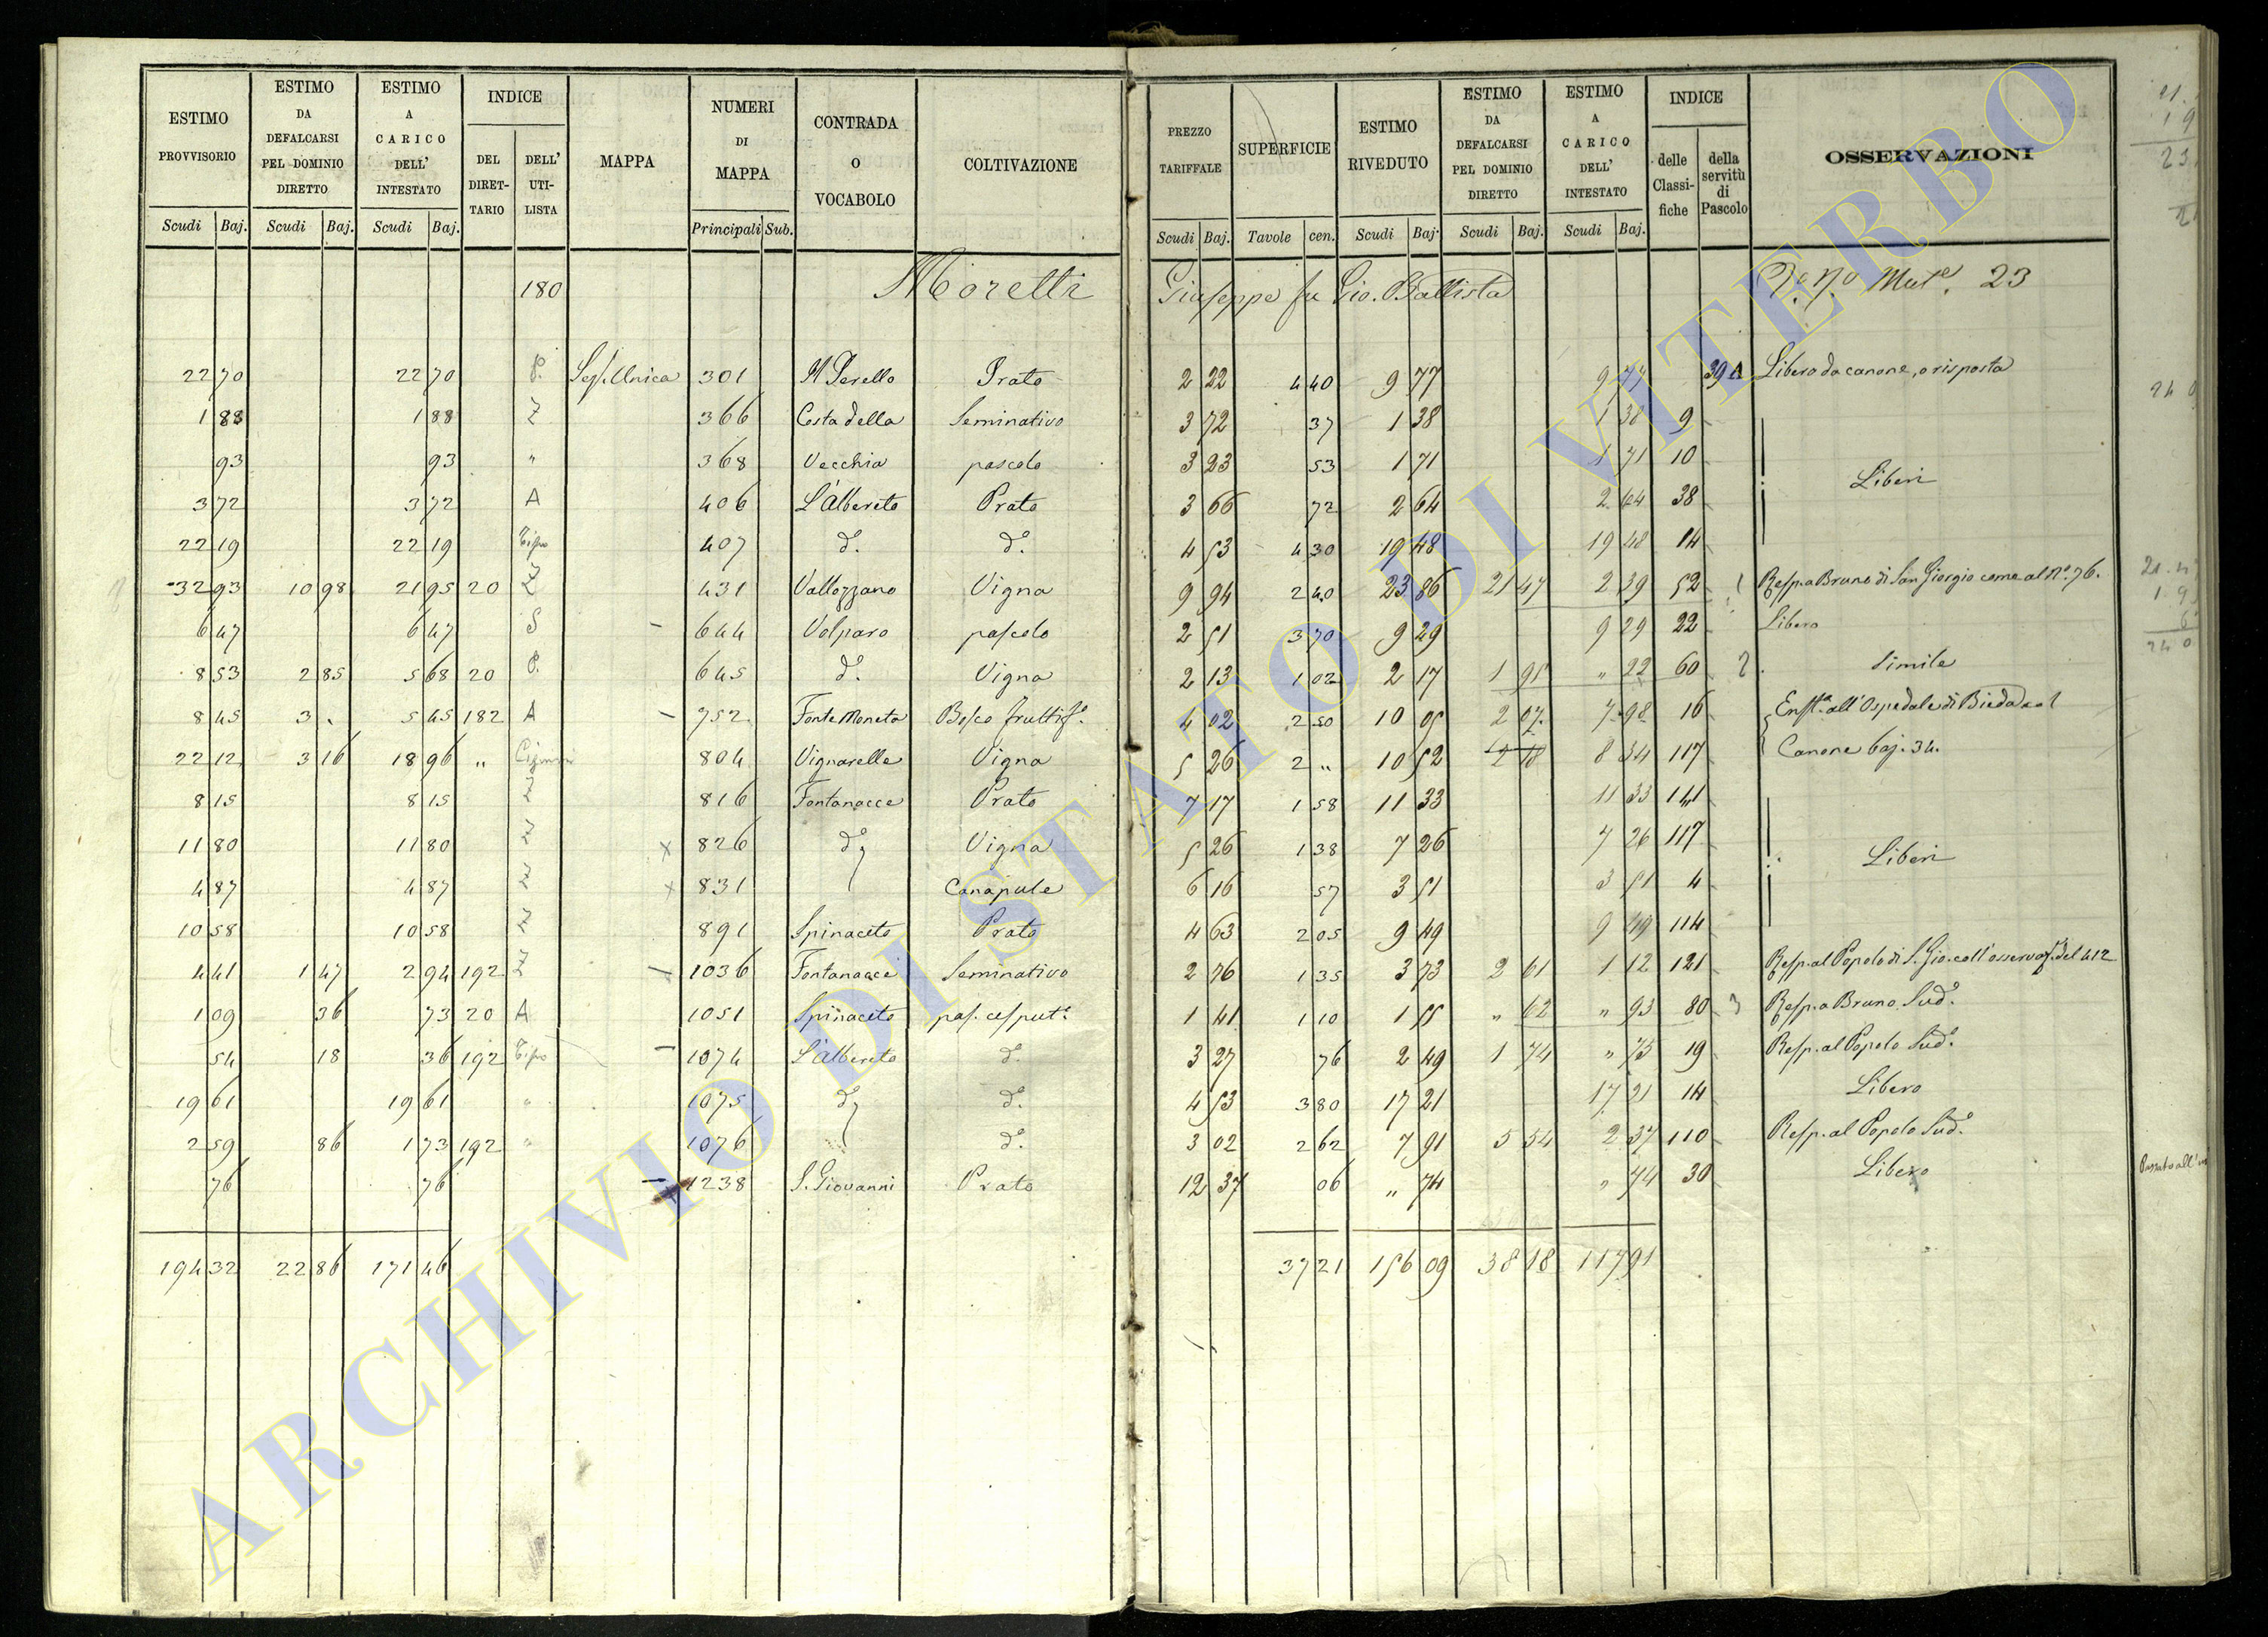 ESTIMO PROVVISORIO Scudi Baj. | ESTIMO DA DEFALCARSI PEL DOMINIO DIRETTO Scudi Baj. | ESTIMO A CARICO DELL' INTESTATO Scudi Baj. | INDICE DEL DIRETTARIO DELL' UTILISTA | MAPPA | NUMERI DI MAPPA Principali Sub. | CONTRADA O VOCABOLO | COLTIVAZIONE | PREZZO TARIFFALE Scudi Baj. | SUPERFICIE Tavole cen. | ESTIMO RIVEDUTO Scudi Baj. | ESTIMO DA DEFALCARSI PEL DOMINIO DIRETTO Scudi Baj. | ESTIMO A CARICO DELL' INTESTATO Scudi Baj. | INDICE delle Classifiche della servitù di Pascolo | OSSERVAZIONI
180 Moretti Giuseppe fu Gio. Battista 23
22 70 22 70 P. Sez. Unica 301 Il Perello Prato 2 22 4 40 9 77 9 77 39 A Libero da canone, o risposta
1 88 1 88 Z 366 Costa della Seminativo 3 72 37 1 38 1 38 9
93 93 " 368 Vecchia pascolo 3 23 53 1 71 1 71 10 Liberi
3 72 3 72 A 406 L'Albereto Prato 3 66 72 2 64 2 64 38
22 19 22 19 407 d.° d.° 4 53 4 30 19 48 19 48 14
32 93 10 98 21 95 20 Z 431 Vallozzano Vigna 9 94 2 40 23 86 21 47 2 39 52 1 Resp. a Bruno di San Giorgio come al N.° 76.
6 47 6 47 S 644 Volparo pascolo 2 51 3 70 9 29 9 29 22 Libero
8 53 2 85 5 68 20 P. 645 d.° Vigna 2 13 1 02 2 17 1 95 " 22 60 2 Simile
8 45 3 " 5 45 182 A 752 Fonte Moneta Bosco fruttif.° 4 02 2 50 10 05 2 07 7 98 16 Enft.a all'Ospedale di Bieda col
22 12 3 16 18 96 " 804 Vignarelle Vigna 5 26 2 " 10 52 2 18 8 34 117 Canone baj. 34.
8 15 8 15 816 Fontanacce Prato 7 17 1 58 11 33 11 33 141
11 80 11 80 826 d.° Vigna 5 26 1 38 7 26 7 26 117 Liberi
4 87 4 87 831 Canapule 6 16 57 3 51 3 51 4
10 58 10 58 891 Spinaceto Prato 4 63 2 05 9 49 9 49 114
4 41 1 47 2 94 192 1036 Fontanacce Seminativo 2 76 1 35 3 73 2 61 1 12 121 Resp. al Popolo di S. Gio. coll'osservaz. del 412
1 09 36 73 20 A 1051 Spinaceto pas. cesput.° 1 41 1 10 1 55 " 62 " 93 80 3 Resp. a Bruno Sud.°
54 18 36 192 1074 L'Albereto d.° 3 27 76 2 49 1 74 " 75 19 Resp. al Popolo Sud.°
19 61 19 61 " 1075 d.° d.° 4 53 3 80 17 21 17 21 14 Libero
2 59 86 1 73 192 " 1076 d.° 3 02 2 62 7 91 5 54 2 37 110 Resp. al Popolo Sud.°
76 76 1238 S. Giovanni Prato 12 37 06 " 74 " 74 30 Libero
194 32 22 86 171 46 37 21 156 09 38 18 117 91
ARCHIVIO DI STATO DI VITERBO